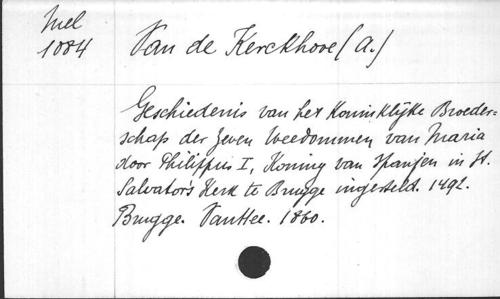 Mel
1084
Van de Kerckhove (A.)
Geschiedenis van het Koninklijke Broeder-
schap der Zeven Weedommen van Maria
door Philippus I, Koning van Spanjen in St.
Salvators Kerk te Brugge ingesteld. 1492.
Brugge. VanHee. 1860.